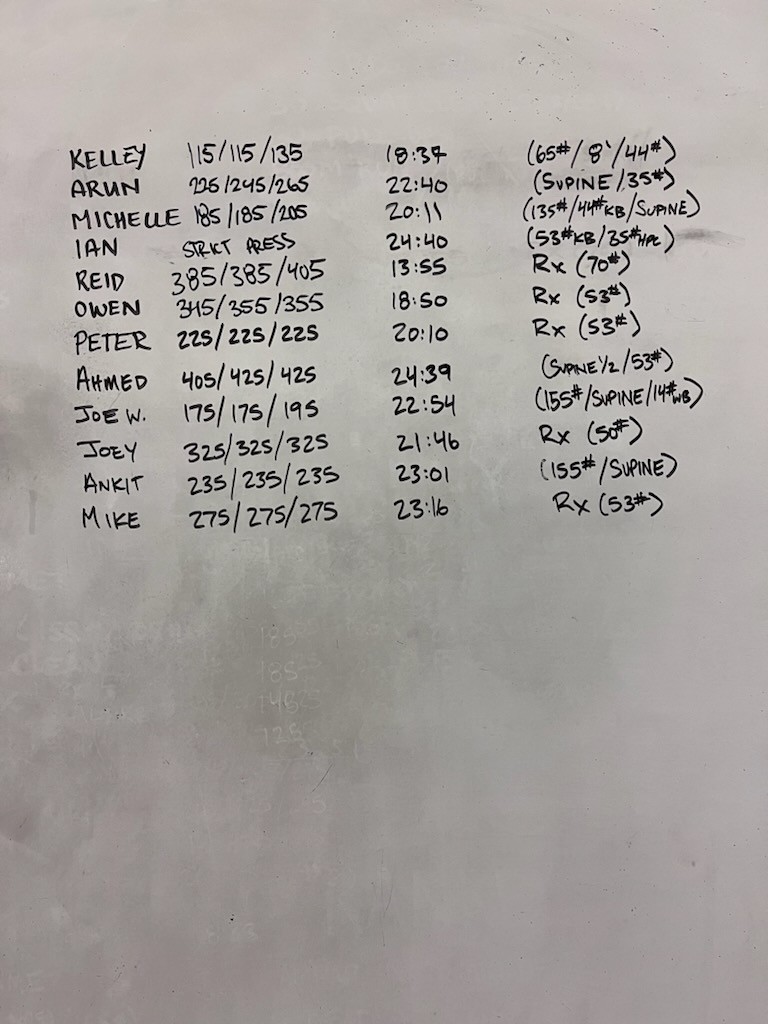 KELLEY 115/115/135 18:37 (65#/8'/44#)
ARUN 225/245/265 22:40 (SUPINE/35#)
MICHELLE 185/185/205 20:11 (135#/44#KB/SUPINE)
IAN STRICT PRESS 24:40 (53#KB/35#HPC)
REID 385/385/405 13:55 Rx (70#)
OWEN 345/355/355 18:50 Rx (53#)
PETER 225/225/225 20:10 Rx (53#)
AHMED 405/425/425 24:39 (SUPINE 1/2/53#)
JOE W. 175/175/195 22:54 (155#/SUPINE/14#WB)
JOEY 325/325/325 21:46 Rx (50#)
ANKIT 235/235/235 23:01 (155#/SUPINE)
MIKE 275/275/275 23:16 Rx (53#)
185
185
145